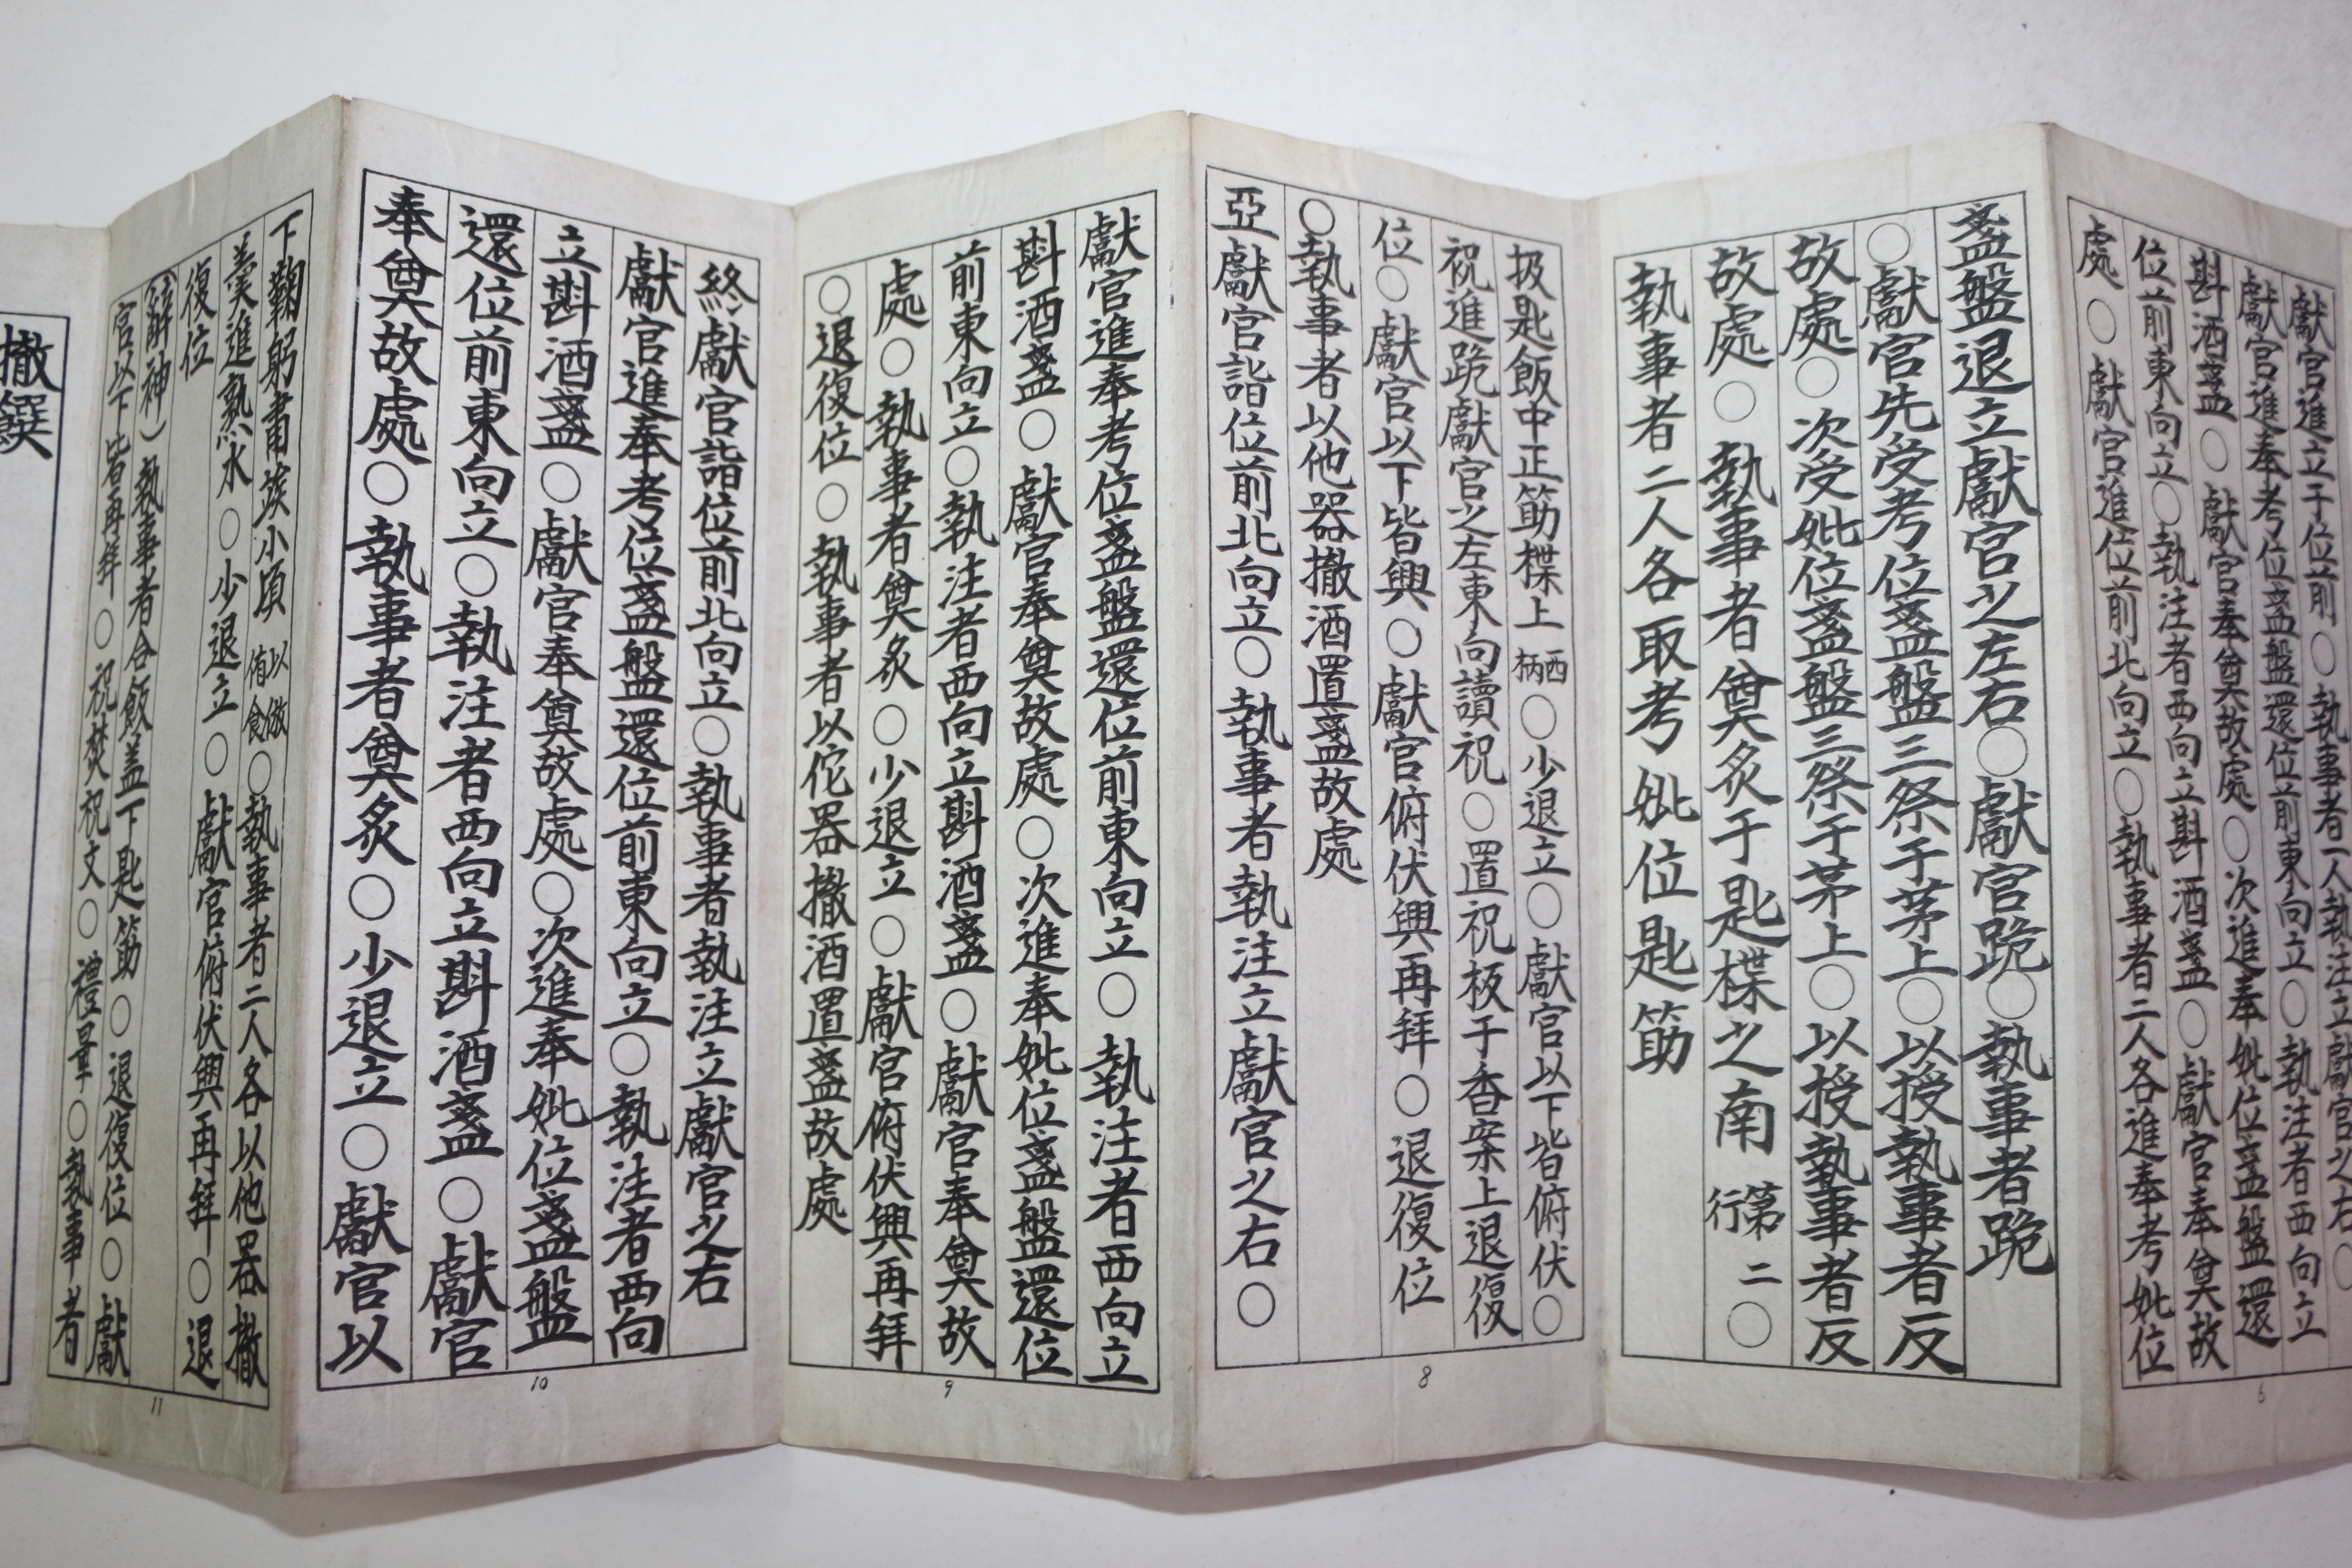 獻官進立于位前○執事者一人執注立獻官之右○
獻官進奉考位盞盤還位前東向立○執注者西向立
斟酒盞○獻官奉奠故處○次進奉妣位盞盤還
位前東向立○執注者西向立斟酒盞○獻官奉奠故
處○獻官進位前北向立○執事者二人各進奉考妣位
6
盞盤退立獻官之左右○獻官跪○執事者跪
○獻官先受考位盞盤三祭于茅上○以授執事者反
故處○次受妣位盞盤三祭于茅上○以授執事者反
故處○執事者奠炙于匙楪之南第二行○
執事者二人各取考妣位匙筯
扱匙飯中正筯楪上西柄○少退立○獻官以下皆俯伏○
祝進跪獻官之左東向讀祝○置祝板于香案上退復
位○獻官以下皆興○獻官俯伏興再拜○退復位
○執事者以他器撤酒置盞故處
亞獻官詣位前北向立○執事者執注立獻官之右○
8
獻官進奉考位盞盤還位前東向立○執注者西向立
斟酒盞○獻官奉奠故處○次進奉妣位盞盤還位
前東向立○執注者西向立斟酒盞○獻官奉奠故
處○執事者奠炙○少退立○獻官俯伏興再拜
○退復位○執事者以佗器撤酒置盞故處
9
終獻官詣位前北向立○執事者執注立獻官之右
獻官進奉考位盞盤還位前東向立○執注者西向
立斟酒盞○獻官奉奠故處○次進奉妣位盞盤
還位前東向立○執注者西向立斟酒盞○獻官
奉奠故處○執事者奠炙○少退立○獻官以
10
下鞠躬肅竢小頃以倣侑食○執事者二人各以他器撤
羹進熟水○少退立○獻官俯伏興再拜○退
復位
(辭神)執事者合飯盖下匙筯○退復位○獻
官以下皆再拜○祝焚祝文○禮畢○執事者
11
撤饌